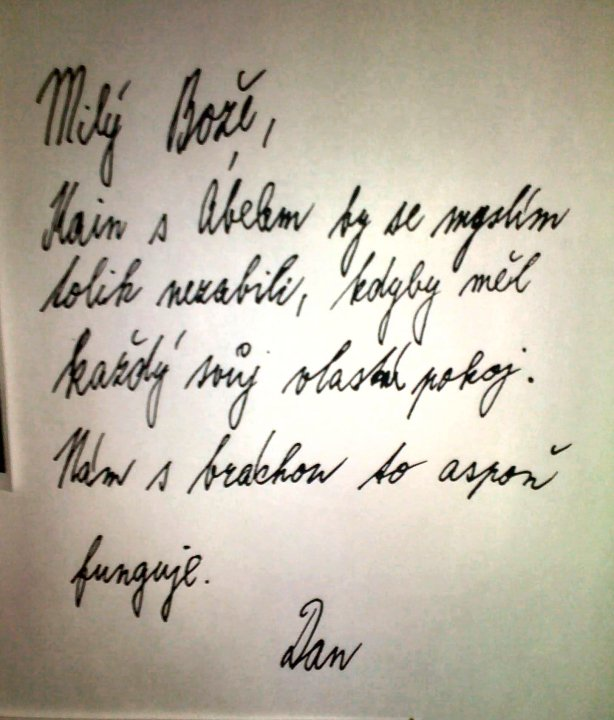 Milý Bože,
Kain s Ábelem by se myslím
tolik nezabili, kdyby měl
každý svůj vlastní pokoj.
Nám s bráchou to aspoň
funguje.
Dan